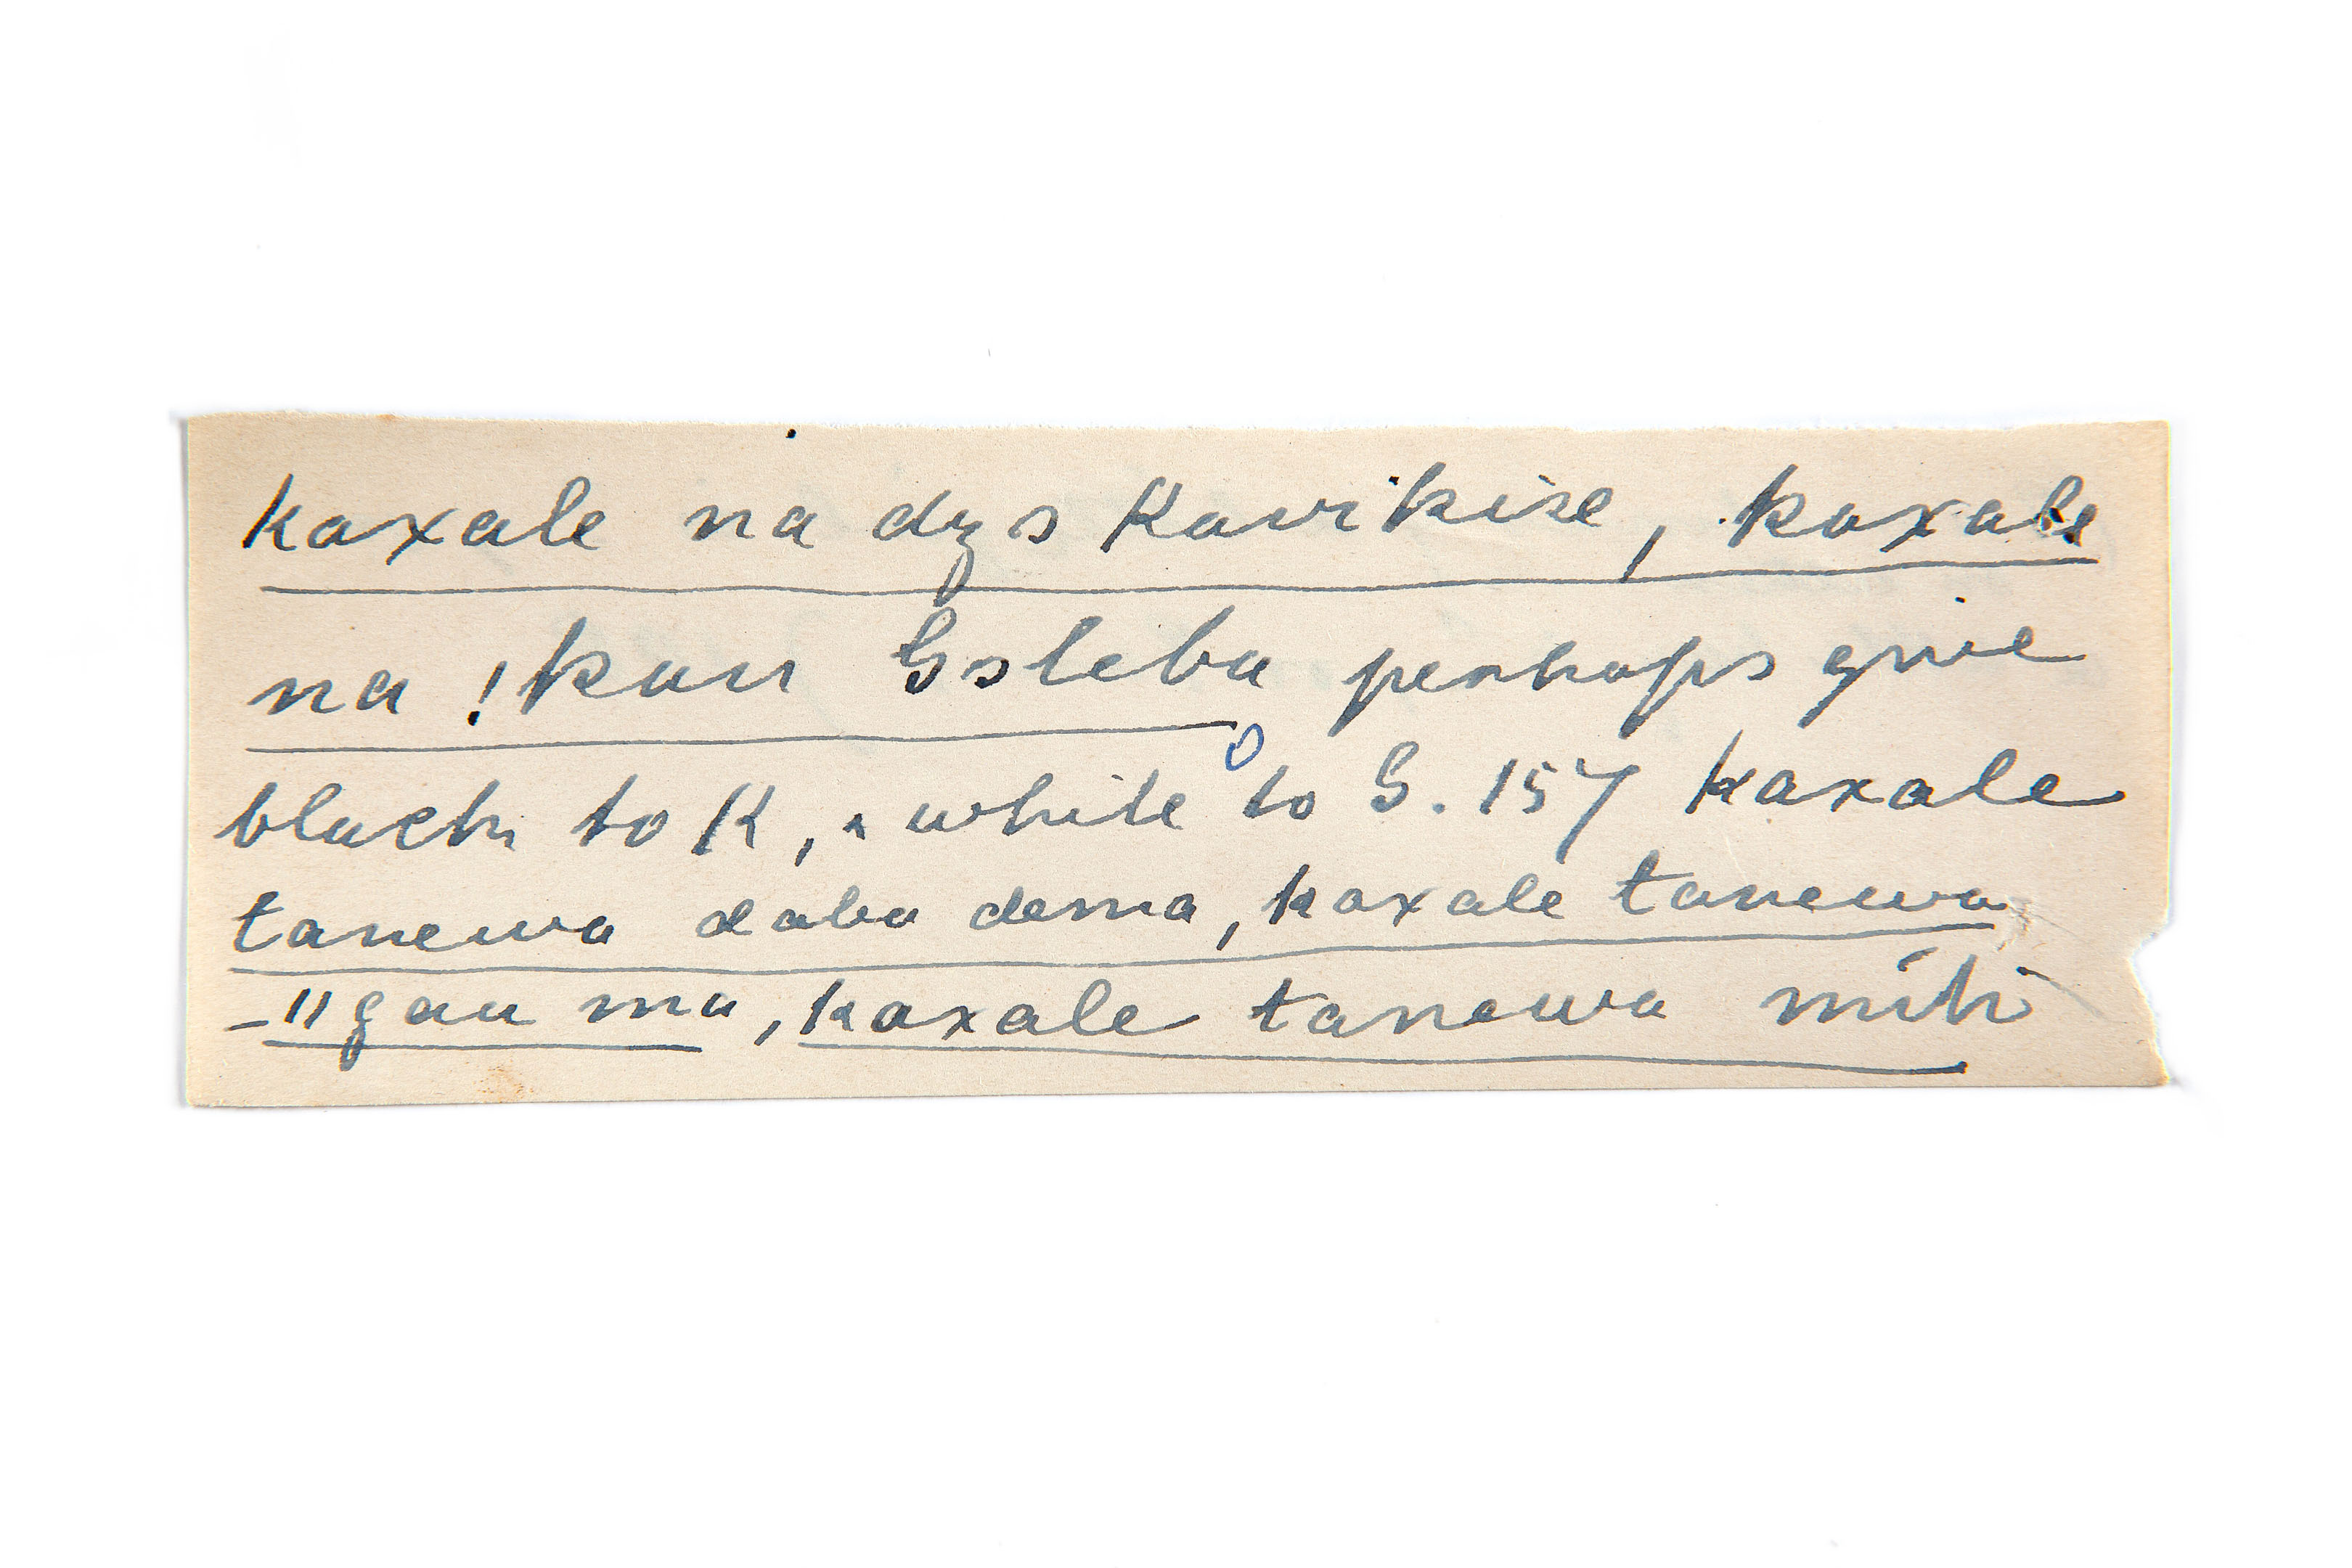 kaxale na dzs Kawikise, kaxale
na !kan Gsleba perhaps give
black to K, & white to G. 157 kaxale
tanewa daba dema, kaxale tanewa
-"gau ma, kaxale tanewa mihi